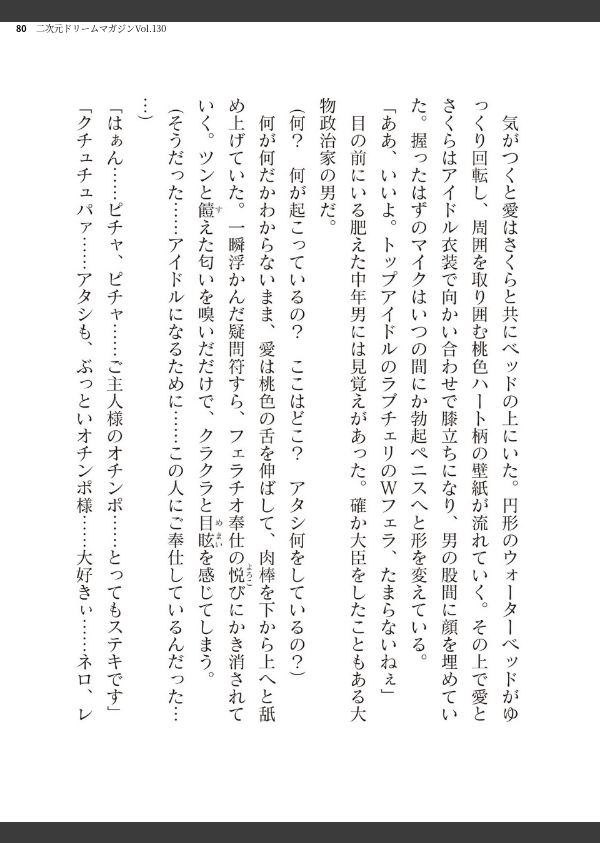 80 二次元ドリームマガジンVol.130
　気がつくと愛はさくらと共にベッドの上にいた。円形のウォーターベッドがゆ
っくり回転し、周囲を取り囲む桃色ハート柄の壁紙が流れていく。その上で愛と
さくらはアイドル衣装で向かい合わせで膝立ちになり、男の股間に顔を埋めてい
た。握ったはずのマイクはいつの間にか勃起ペニスへと形を変えている。
「ああ、いいよ。トップアイドルのラブチェリのWフェラ、たまらないねぇ」
　目の前にいる肥えた中年男には見覚えがあった。確か大臣をしたこともある大
物政治家の男だ。
(何?　何が起こっているの?　ここはどこ?　アタシ何をしているの?)
　何が何だかわからないまま、愛は桃色の舌を伸ばして、肉棒を下から上へと舐
め上げていた。一瞬浮かんだ疑問符すら、フェラチオ奉仕の悦びにかき消されて
いく。ツンと饐えた匂いを嗅いだだけで、クラクラと目眩を感じてしまう。
(そうだった……アイドルになるために……この人にご奉仕しているんだった…
…)
「はぁん……ピチャ、ピチャ……ご主人様のオチンポ……とってもステキです」
「クチュチュパァ……アタシも、ぶっといオチンポ様……大好きぃ……ネロ、レ